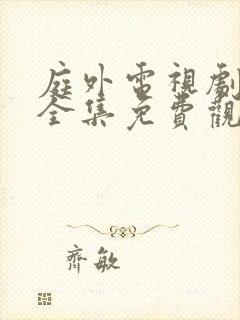 庭外電視劇
全集免費觀
齊敏